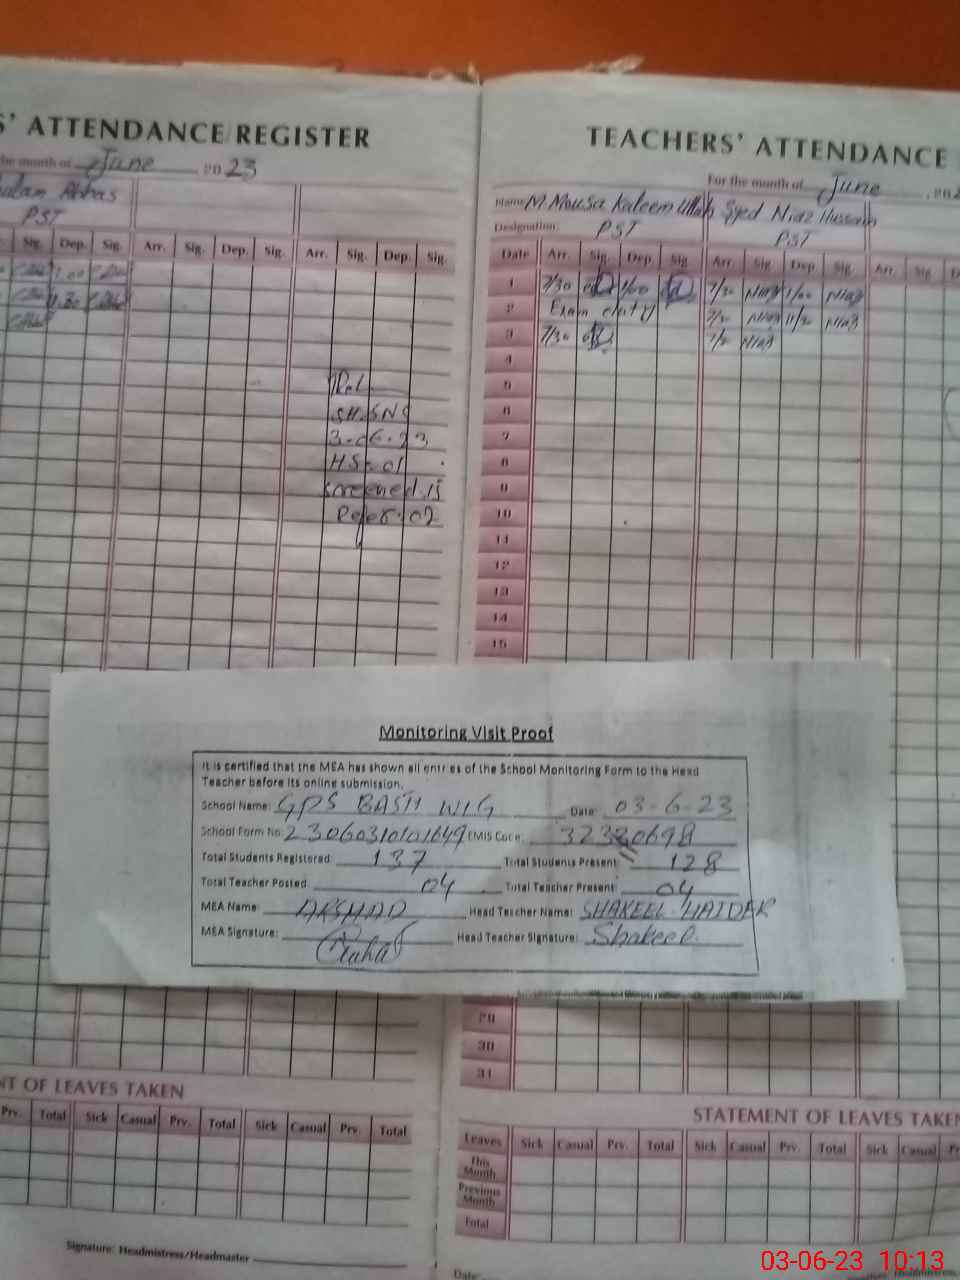 S' ATTENDANCE REGISTER
he month of June 2023
ulam Abbas
PST
Sig. Dep. Sig. Arr. Sig. Dep. Sig. Arr. Sig. Dep. Sig.
1.00
11.30
3-06-23
HS-01
screened.15
Refer.02
TEACHERS' ATTENDANCE
For the month of June 202
Name M. Mousa Kaleem Ullah Syed Niaz Hussain
Designation PST PST
Date Arr. Sig. Dep. Sig. Arr. Sig. Dep. Sig. Arr. Sig. D
1 7/30 1/00 7/30 Niaz 1/00 Niaz
2 Exam duty 7/30 Niaz 11/30 Niaz
3 7/30 7/30 Niaz
4
5
6
7
8
9
10
11
12
13
14
15
Monitoring Visit Proof
It is certified that the MEA has shown all entries of the School Monitoring Form to the Head
Teacher before its online submission.
School Name: GPS BASTI Date: 03-6-23
School Form No: 23060310101649 EMIS Code: 32330698
Total Students Registered: 137 Total Students Present: 128
Total Teacher Posted: 04 Total Teacher Present: 04
MEA Name: ARSHAD Head Teacher Name: SHAKEEL HAIDER
MEA Signature: Head Teacher Signature: Shakeel
29
30
31
NT OF LEAVES TAKEN
Prv. Total Sick Casual Prv. Total Sick Casual Prv. Total
Signature: Headmistress/Headmaster
STATEMENT OF LEAVES TAKEN
Leaves Sick Casual Prv. Total Sick Casual Prv. Total Sick Casual
This Month
Previous Month
Total
Date:
03-06-23 10:13